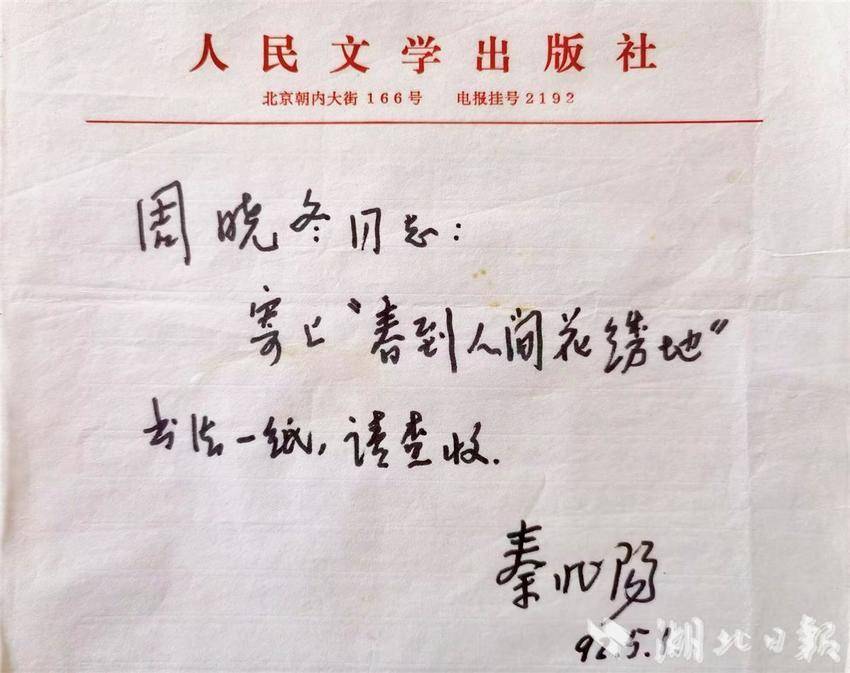 人民文学出版社
北京朝内大街166号 电报挂号2192
周晓冬同志:
寄上“春到人间花绣地”
书法一纸,请查收.
秦兆阳
92.5.
湖北日报